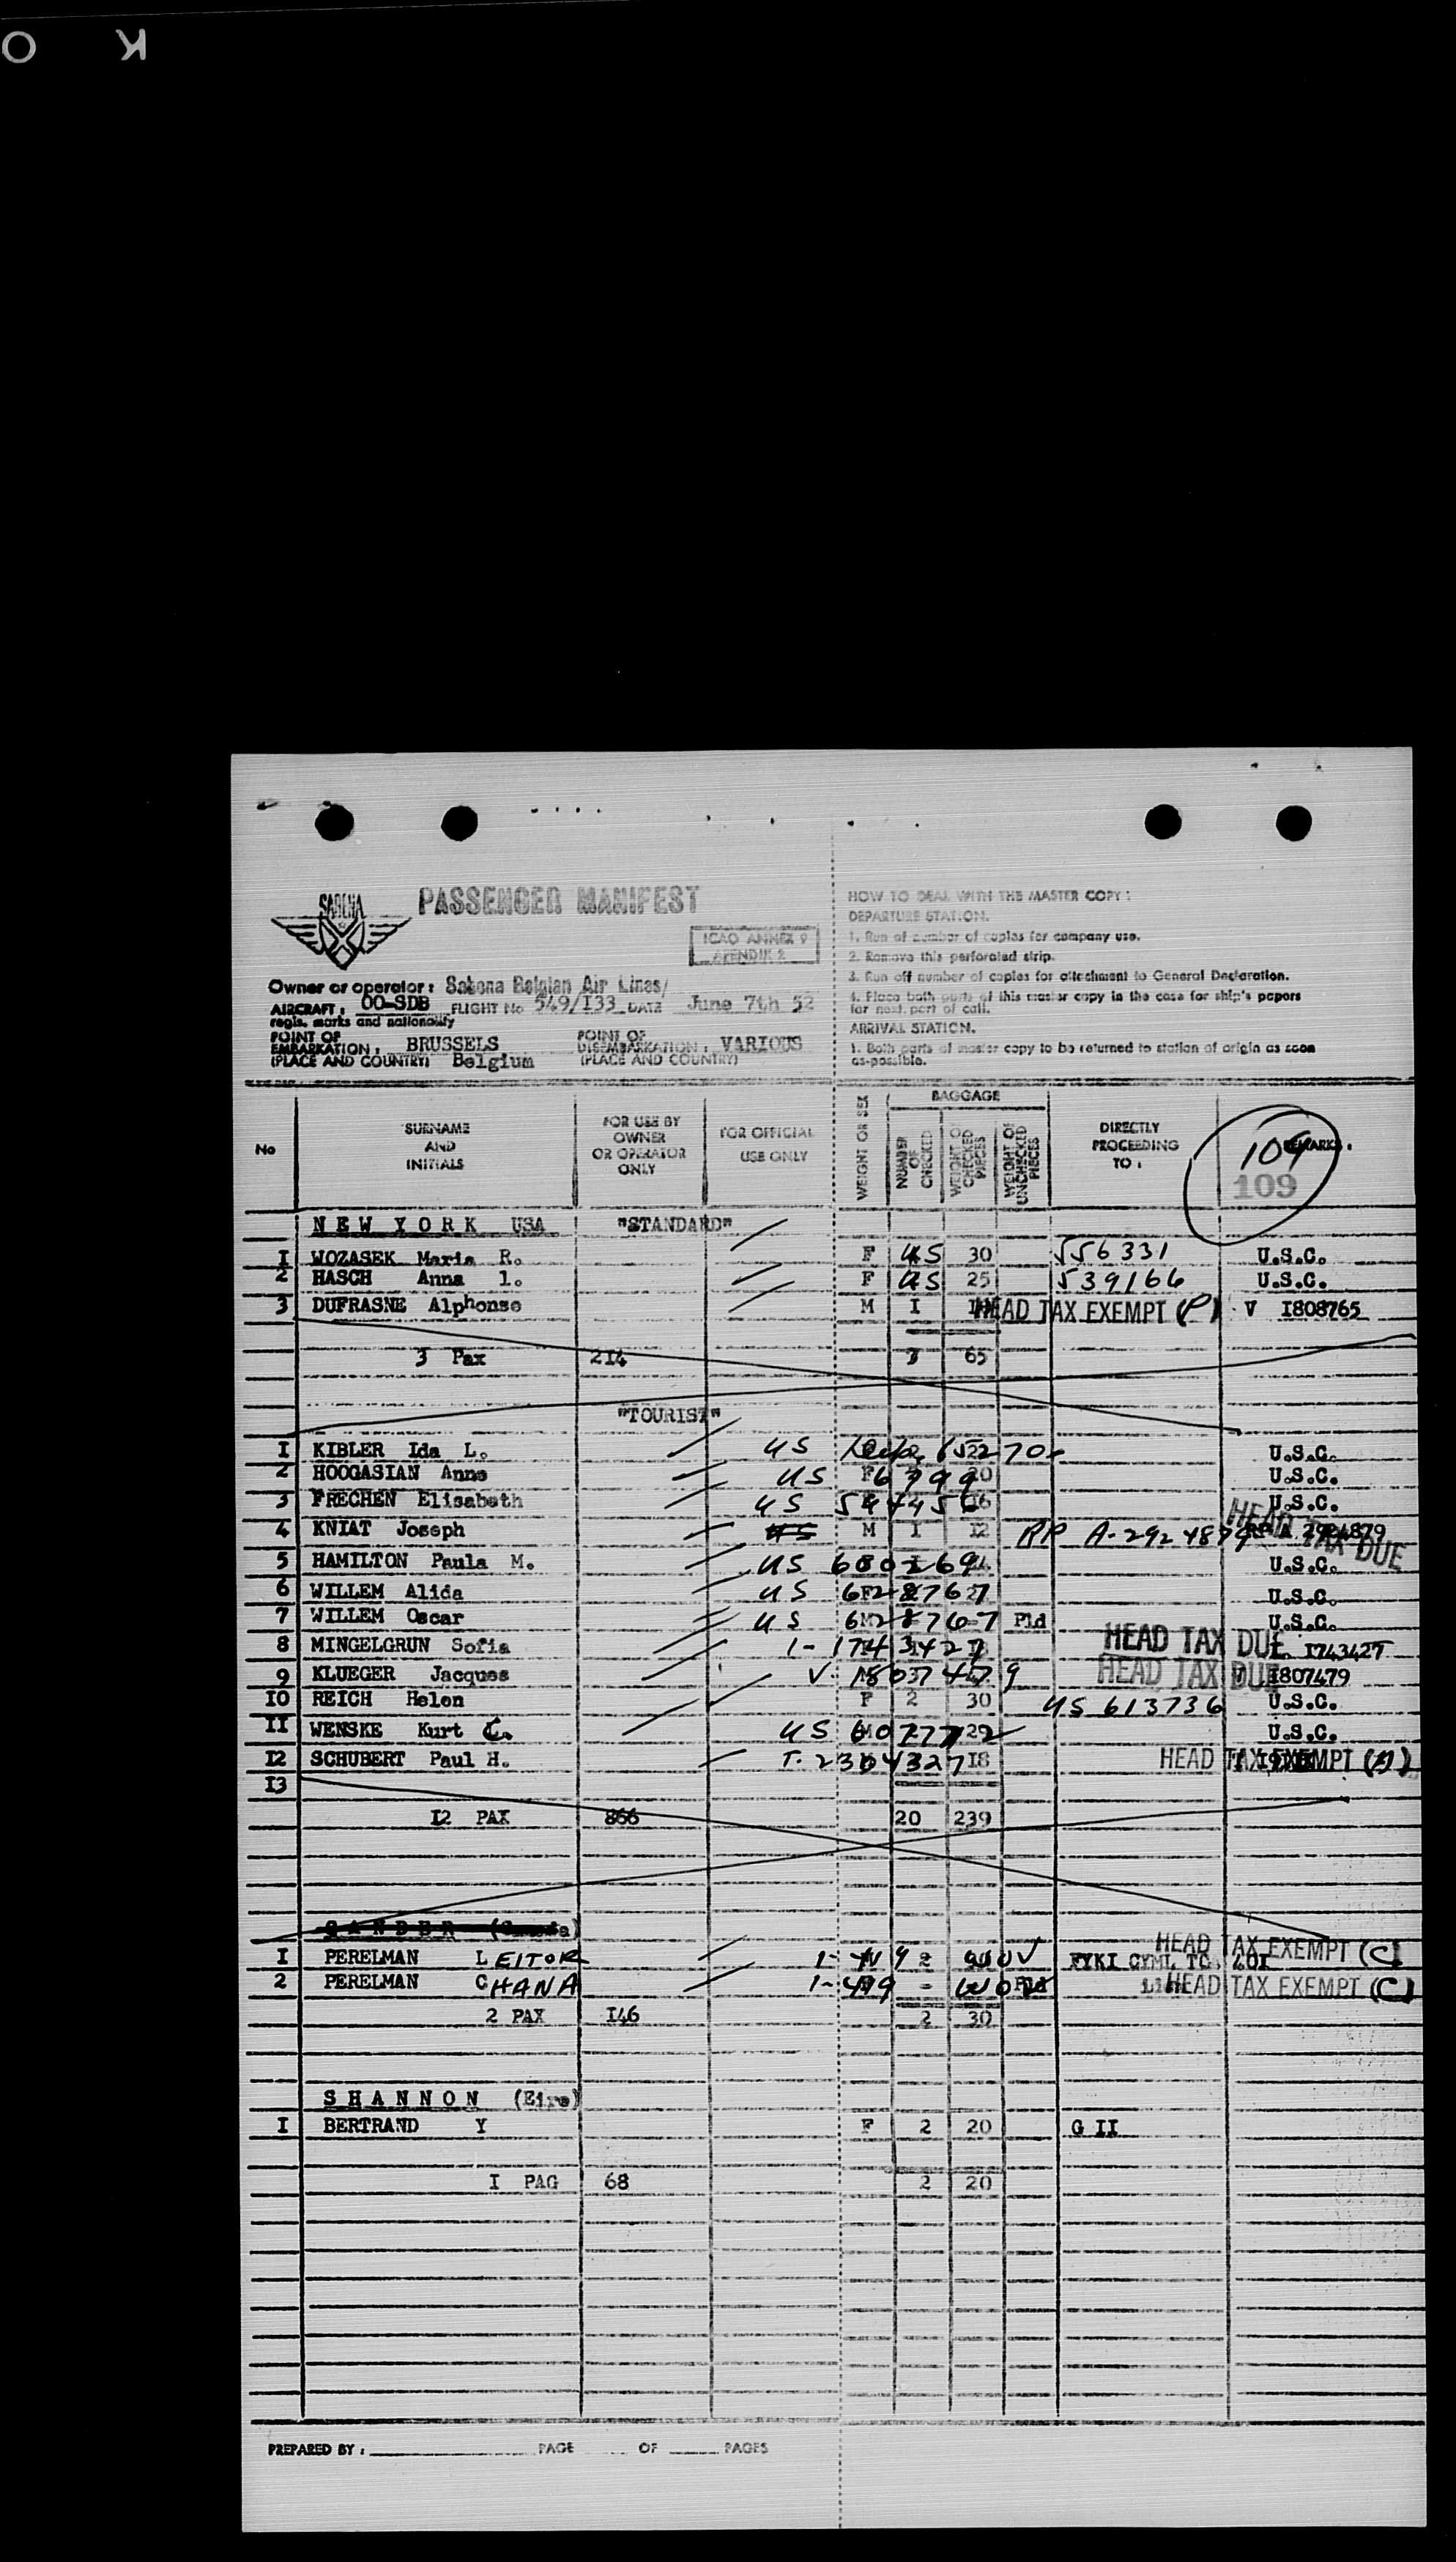 O K
SABENA
PASSENGER MANIFEST
ICAO ANNEX 9
APENDIK 2
Owner or operator : Sabena Belgian Air Lines/
AIRCRAFT : OO-SDB FLIGHT No 549/I33 DATE June 7th 52
regis. marks and nationality
POINT OF EMBARKATION : BRUSSELS
(PLACE AND COUNTRY) Belgium
POINT OF DISEMBARKATION : VARIOUS
(PLACE AND COUNTRY)
HOW TO DEAL WITH THE MASTER COPY :
DEPARTURE STATION.
1. Run of number of copies for company use.
2. Remove this perforated strip.
3. Run off number of copies for attachment to General Declaration.
4. Place both parts of this master copy in the case for ship's papers
for next port of call.
ARRIVAL STATION.
1. Both parts of master copy to be returned to station of origin as soon
as possible.
No
SURNAME AND INITIALS
FOR USE BY OWNER OR OPERATOR ONLY
FOR OFFICIAL USE ONLY
WEIGHT OR SEX
BAGGAGE
NUMBER OF CHECKED
WEIGHT OF CHECKED PIECES
WEIGHT OF UNCHECKED PIECES
DIRECTLY PROCEEDING TO :
REMARKS :
109
109
NEW YORK USA "STANDARD"
I WOZASEK Maria R. F US 30 556331 U.S.C.
2 HASCH Anna l. F US 25 539166 U.S.C.
3 DUFRASNE Alphonse M I HEAD TAX EXEMPT (P) V I808765
3 Pax 214 65
"TOURIST"
I KIBLER Ida L. US U.S.C.
2 HOOGASIAN Anna US U.S.C.
3 FRECHEN Elisabeth US U.S.C.
4 KNIAT Joseph US M I 12 RP A-2924879 HEAD TAX DUE
5 HAMILTON Paula M. US U.S.C.
6 WILLEM Alida US 628767 U.S.C.
7 WILLEM Oscar US 628767 Pld U.S.C.
8 MINGELGRUN Sofia I-1743427 HEAD TAX DUE I743427
9 KLUEGER Jacques V. 1807479 HEAD TAX DUE I807479
IO REICH Helen F 2 30 US 613736 U.S.C.
II WENSKE Kurt C. US U.S.C.
I2 SCHUBERT Paul H. T-2304327 18 HEAD TAX EXEMPT
I3
I2 PAX 866 20 239
GANDER (Canada)
I PERELMAN LEITOR HEAD TAX EXEMPT (C)
2 PERELMAN CHANA HEAD TAX EXEMPT (C)
2 PAX I46 2 30
SHANNON (Eire)
I BERTRAND Y F 2 20 G II
I PAG 68 2 20
PREPARED BY : PAGE OF PAGES